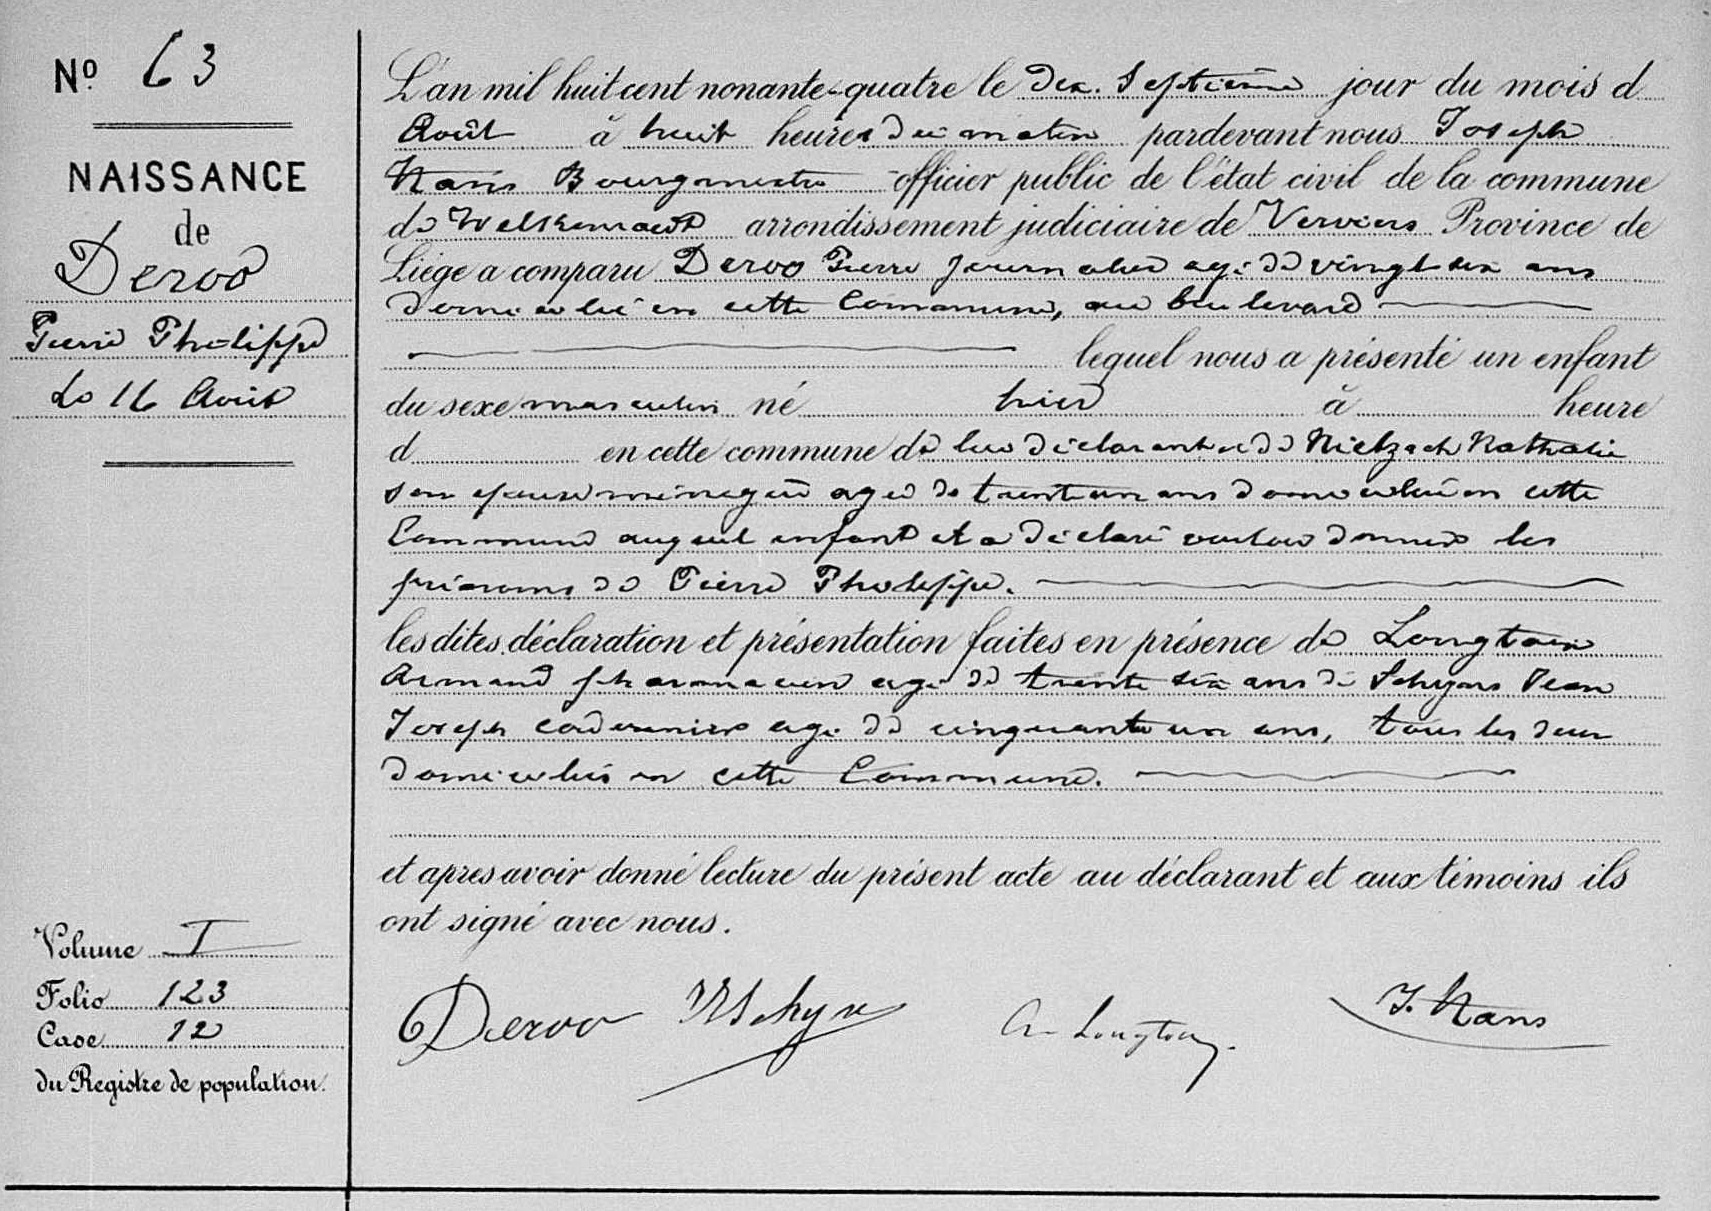 Nº 63
NAISSANCE
de
Deroo
Pierre Philippe
Le 16 Août
Volume I
Folio 123
Case 12
du Registre de population.
L'an mil huit cent nonante-quatre le dix. Septième jour du mois d
Août à huit heures du matin pardevant nous Joseph
Hans Bourgmestre officier public de l'état civil de la commune
de Welkenraedt arrondissement judiciaire de Verviers Province de
Liége a comparu Deroo Pierre journalier agé de vingt six ans
domicilié en cette Commune, au boulevard
lequel nous a présenté un enfant
du sexe masculin né hier à heure
d en cette commune de lui déclarant et de Nathalie
son épouse ménagère agée de trente un ans domiciliée en cette
Commune auquel enfant il a déclaré vouloir donner les
prénoms de Pierre Philippe.
les dites déclaration et présentation faites en présence de Longtain
Armand pharmacien agé de trente six ans de Schyns Jean
Joseph cordonnier agé de cinquante un ans, tous les deux
domiciliés en cette Commune.
et apres avoir donné lecture du présent acte au déclarant et aux témoins ils
ont signé avec nous.
Deroo Schyns A Longtain J. Hans